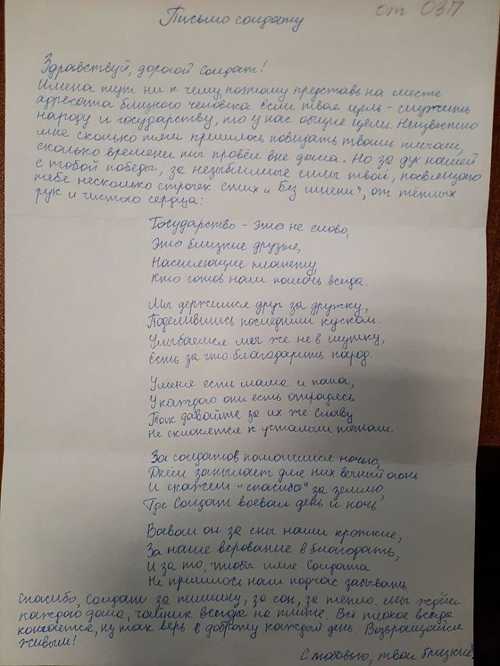 Письмо солдату
от ОЗП
Здравствуй, дорогой солдат!
Имена тут ни к чему, поэтому представь на месте
адресата близкого человека. Если твоя цель - служить
народу и государству, то у нас общие цели. Неизвестно
мне сколько тягот пришлось повидать твоим плечам,
сколько времени ты провёл вне дома. Но за дух нашей
с тобой победы, за незыблимые силы твои, посвящаю
тебе несколько строчек стиха "Без имени", от тёплых
рук и чистого сердца:
Государство - это не слово,
Это близкие друзья,
Населяющие планету
Кто готов нам помочь всегда.
Мы держимся друг за дружку,
Поделившись последним куском.
Улыбаемся мы же не в шутку,
Есть за что благодарить народ.
У меня есть мама и папа,
У каждого они есть
Так давайте за их же славу
Не склонятся к усталым
За солдатов помолимся ночью,
Днём зажигает для них вечный огонь
И скажем "спасибо" за землю,
Где Солдат воевал день и ночь
Воевал он за сны наши кроткие,
За наше верование в благодать,
И за то, чтобы имя Солдата
Не пришлось нам подчас забывать
Спасибо, Солдат за тишину, за сон, за тепло. Мы ждём
каждого дома, чайник всегда на плите. Всё плохое всегда
кончается, ну так верь в доброту каждый день. Возвращайся
живым!
С любовью, твои близкие